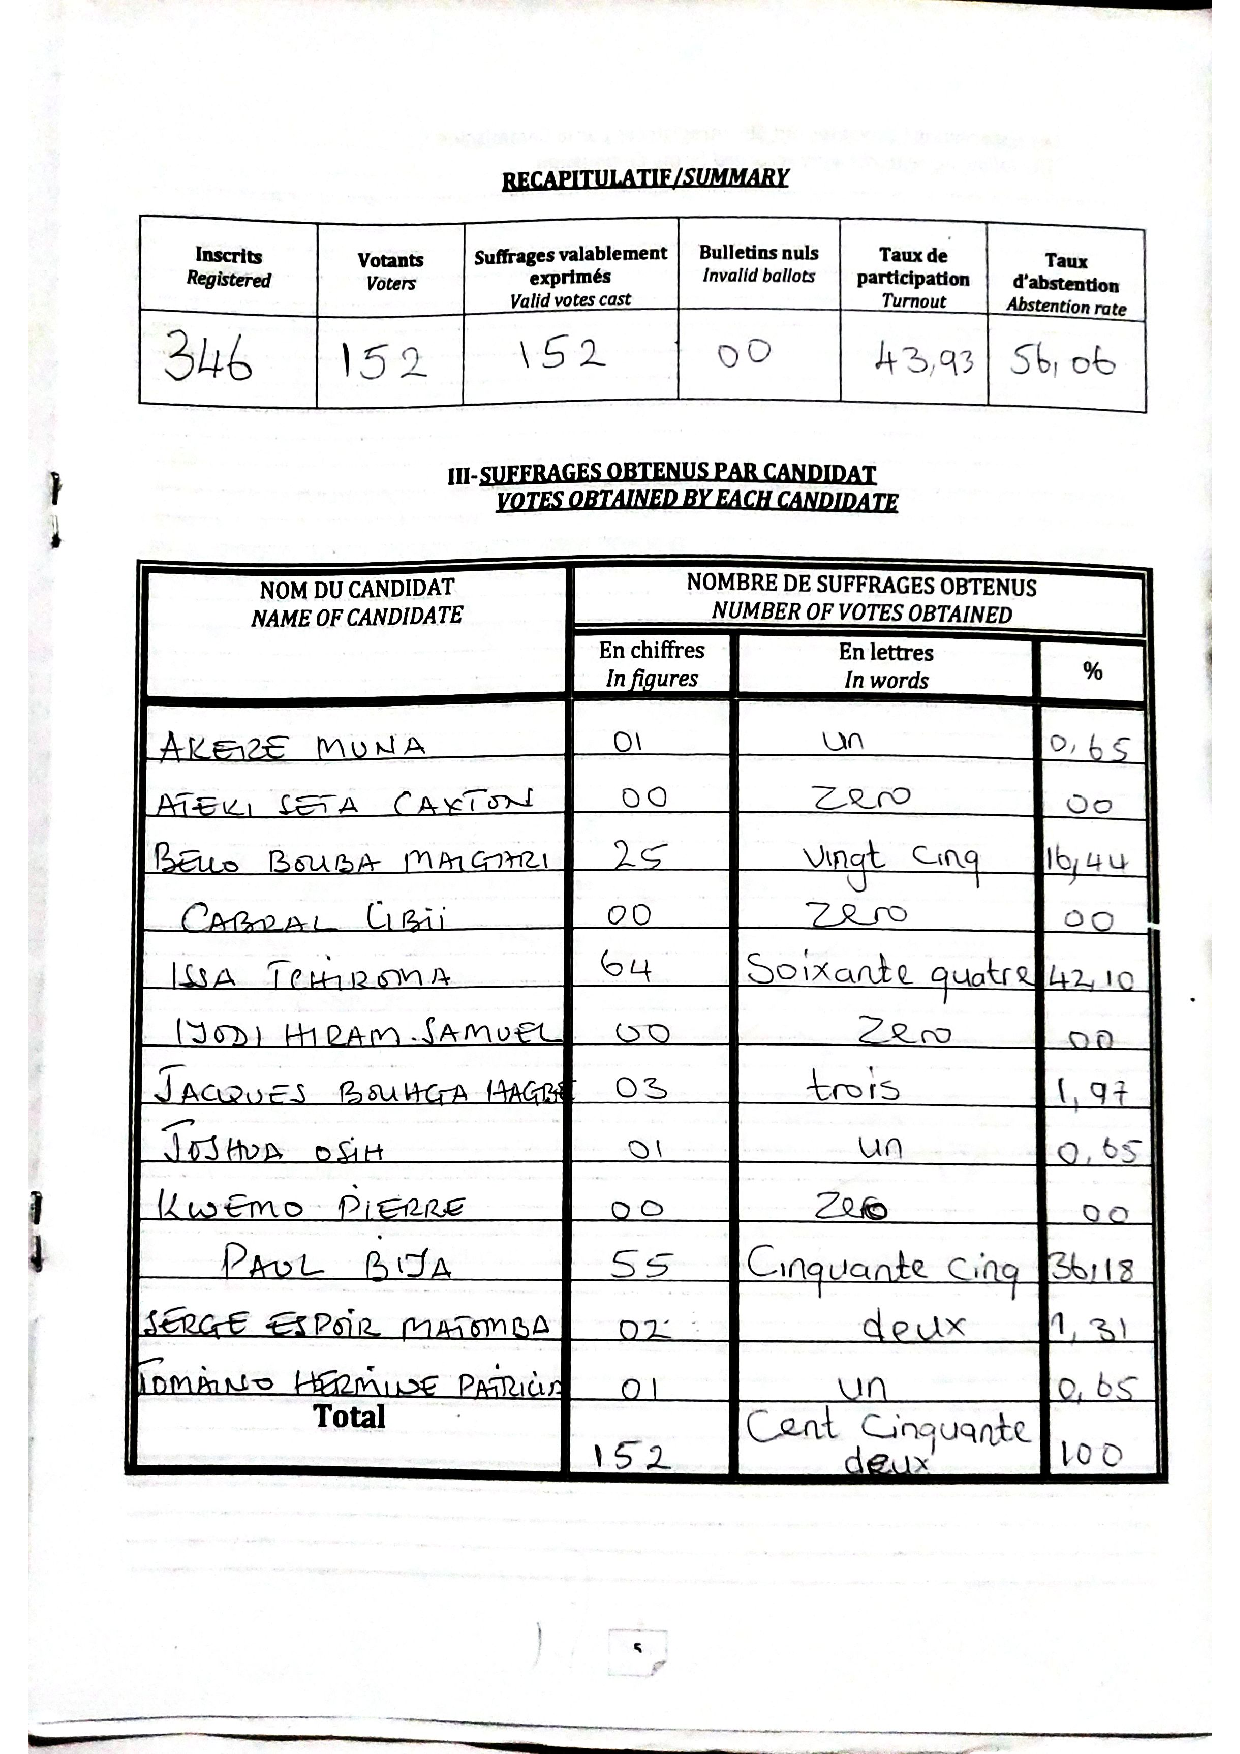 RECAPITULATIF/SUMMARY
Inscrits Registered | Votants Voters | Suffrages valablement exprimés Valid votes cast | Bulletins nuls Invalid ballots | Taux de participation Turnout | Taux d'abstention Abstention rate
346 | 152 | 152 | 00 | 43,93 | 56,06
III-SUFFRAGES OBTENUS PAR CANDIDAT
VOTES OBTAINED BY EACH CANDIDATE
NOM DU CANDIDAT NAME OF CANDIDATE | NOMBRE DE SUFFRAGES OBTENUS NUMBER OF VOTES OBTAINED
En chiffres In figures | En lettres In words | %
AKERE MUNA | 01 | un | 0,65
ATEKI SETA CAXTON | 00 | Zero | 00
BELLO BOUBA MAIGARI | 25 | Vingt cinq | 16,44
CABRAL LIBII | 00 | Zero | 00
ISSA TCHIROMA | 64 | Soixante quatre | 42,10
IYODI HIRAM SAMUEL | 00 | Zero | 00
JACQUES BOUHGA HAGBE | 03 | trois | 1,97
JOSHUA OSIH | 01 | un | 0,65
KWEMO PIERRE | 00 | Zero | 00
PAUL BIYA | 55 | Cinquante cinq | 36,18
SERGE ESPOIR MATOMBA | 02 | deux | 1,31
TOMAINO HERMINE PATRICIA | 01 | un | 0,65
Total | 152 | Cent Cinquante deux | 100
5